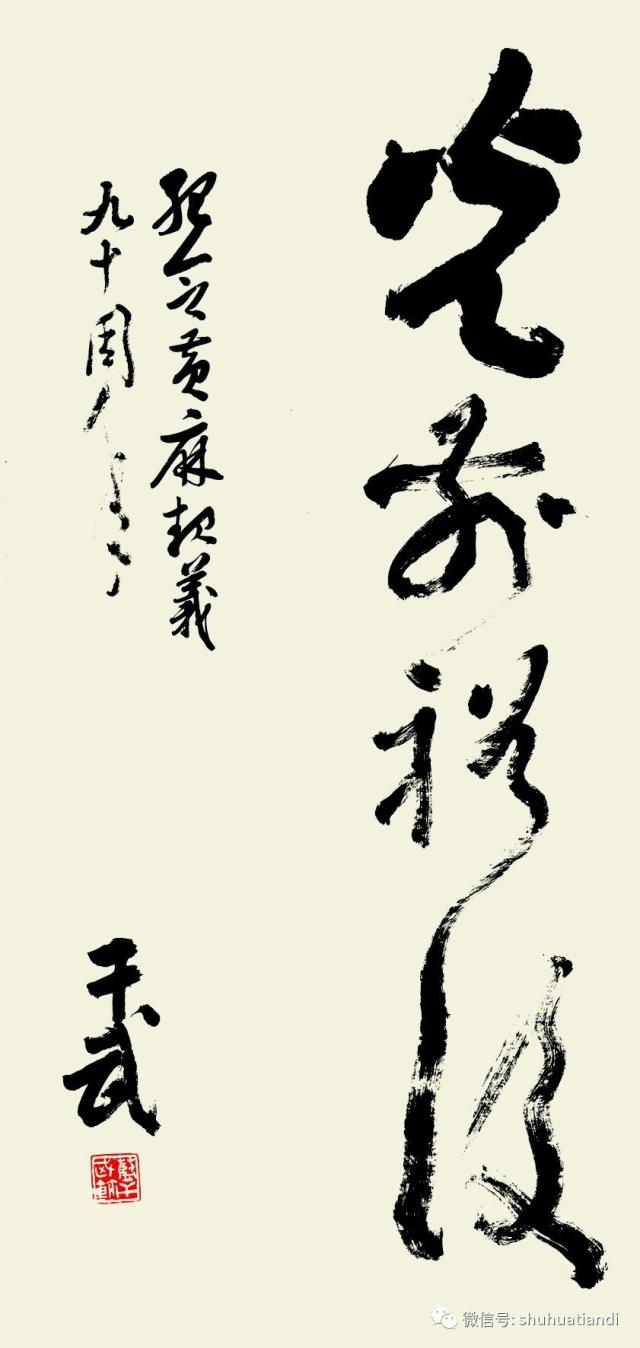 光前裕後
紀念黄麻起義
九十周年
微信号: shuhuatiandi